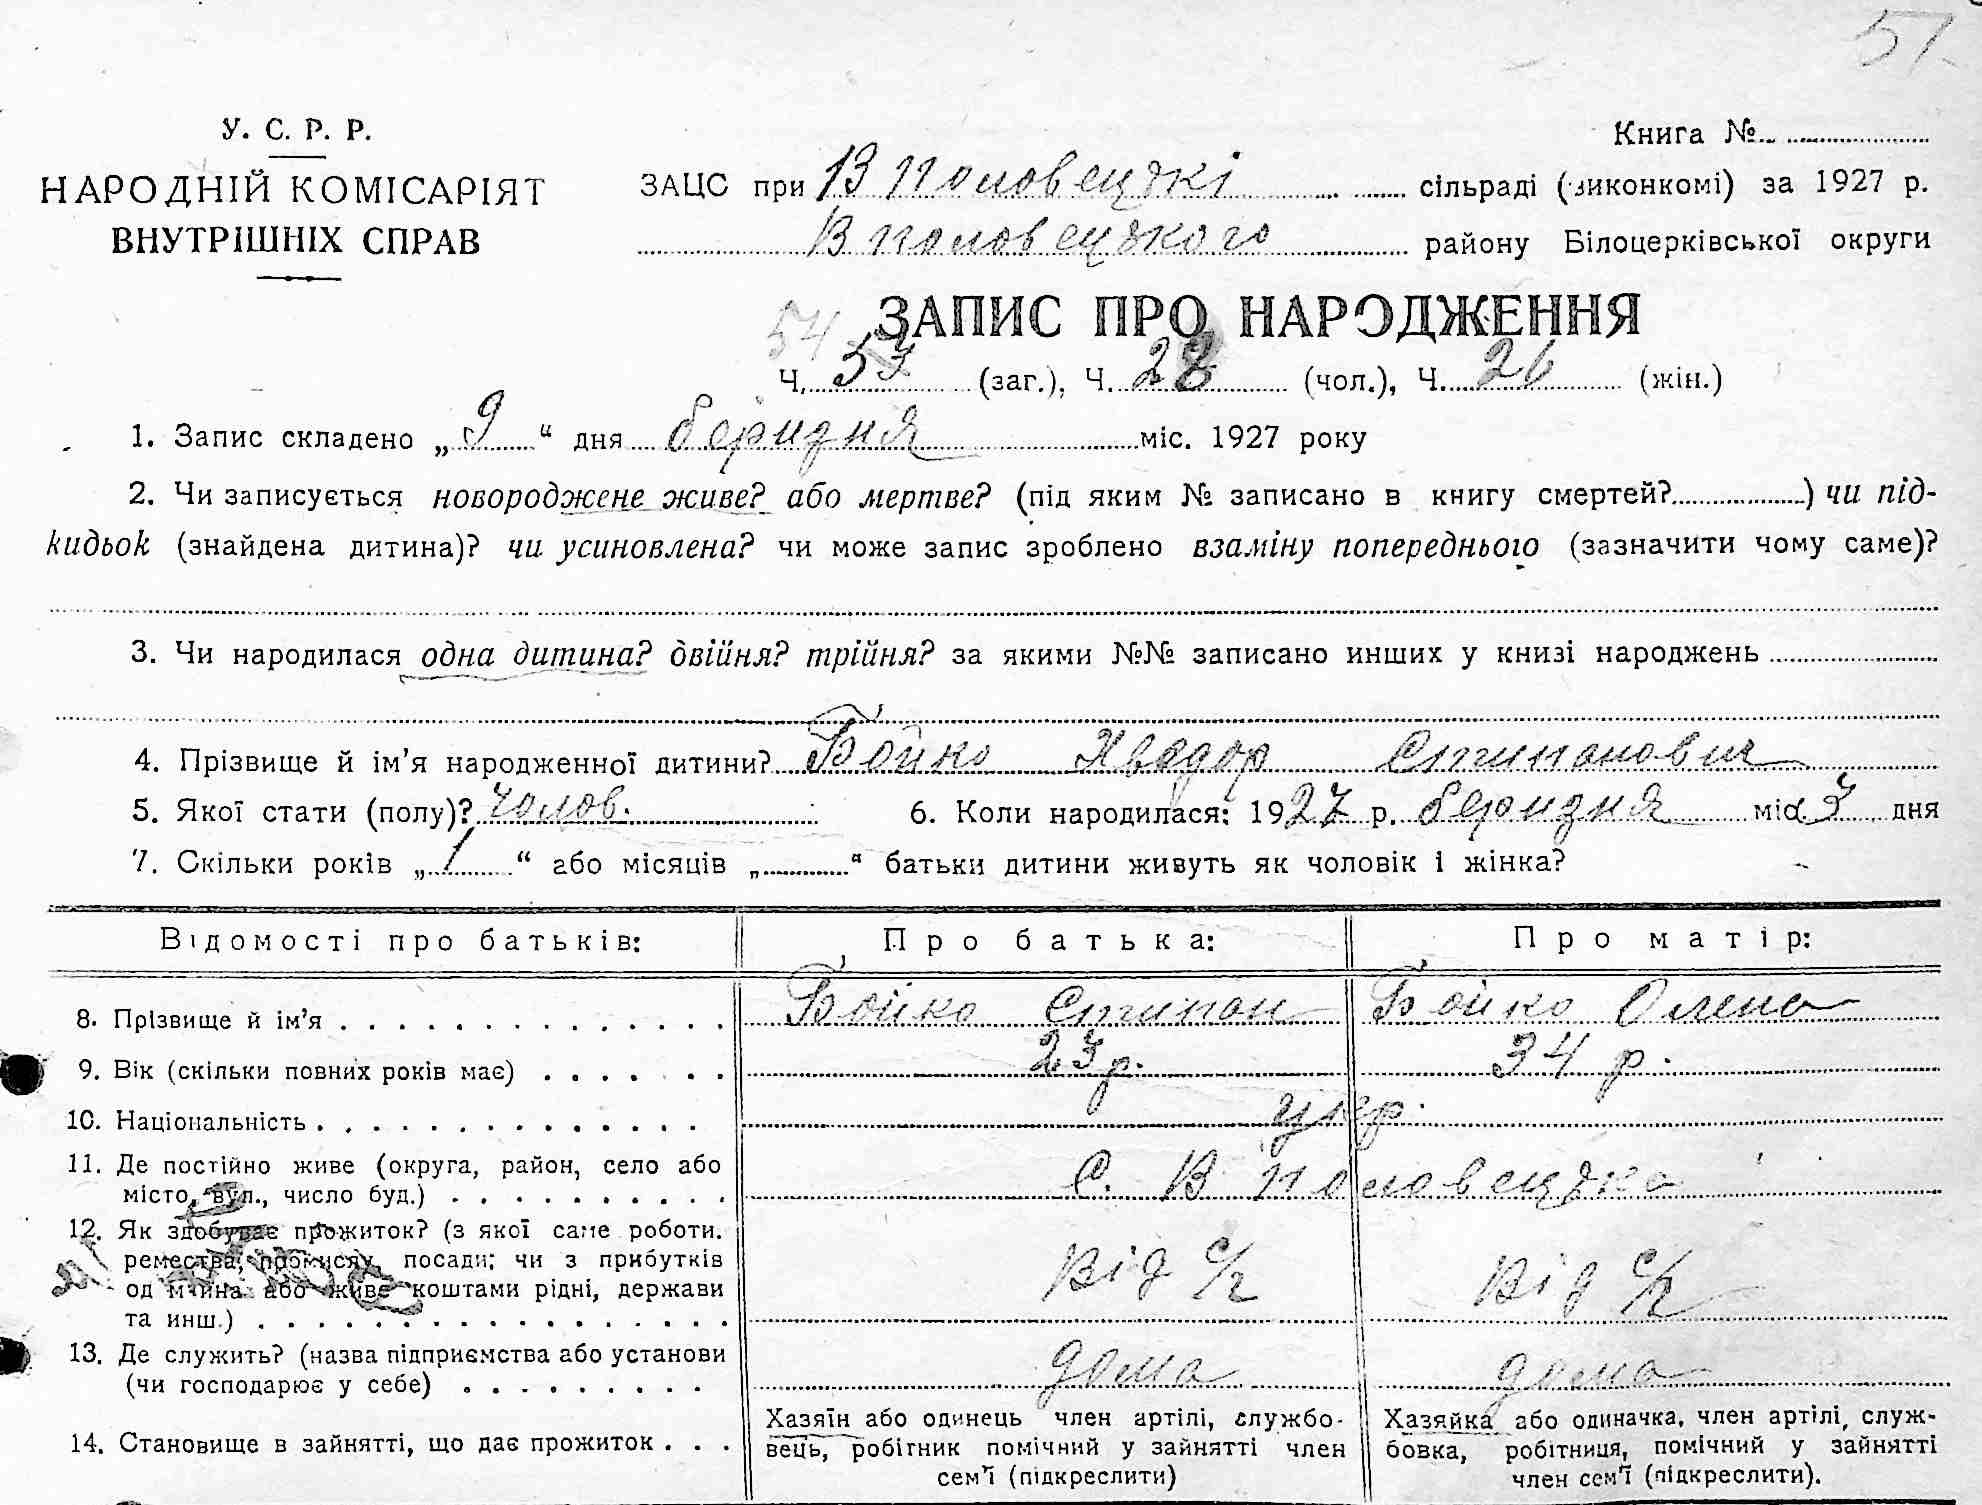 51.
У. С. Р. Р.
НАРОДНІЙ КОМІСАРІЯТ
ВНУТРІШНІХ СПРАВ
Книга №
ЗАЦС при В Половецькі сільраді (виконкомі) за 1927 р.
В половецького району Білоцерківської округи
ЗАПИС ПРО НАРОДЖЕННЯ
54
Ч. 57 (заг.), Ч. 28 (чол.), Ч. 26 (жін.)
1. Запис складено „9“ дня беридня міс. 1927 року
2. Чи записується новороджене живе? або мертве? (під яким № записано в книгу смертей? ) чи під-
кидьок (знайдена дитина)? чи усиновлена? чи може запис зроблено взаміну попереднього (зазначити чому саме)?
3. Чи народилася одна дитина? двійня? трійня? за якими №№ записано инших у книзі народжень
4. Прізвище й ім’я народженної дитини? Бойко Хведор Стипанович
5. Якої стати (полу)? чолов. 6. Коли народилася: 1927 р. беризня міс. 7 дня
7. Скільки років „1“ або місяців „ “ батьки дитини живуть як чоловік і жінка?
Відомості про батьків: Про батька: Про матір:
8. Прізвище й ім’я Бойко Стипан Бойко Олена
9. Вік (скільки повних років має) 27 р. 34 р.
10. Національність укр.
11. Де постійно живе (округа, район, село або
місто, вул., число буд.) С. В Половецька
12. Як здобуває прожиток? (з якої саме роботи.
ремества, промислу, посади; чи з прибутків
од майна або живе коштами рідні, держави
та инш.) Від с/г Від с/г
13. Де служить? (назва підприємства або установи
(чи господарює у себе) дома дома
14. Становище в зайнятті, що дає прожиток
Хазяїн або одинець член артілі, службо-
вець, робігник помічний у зайнятті член
сем’ї (підкреслити)
Хазяйка або одиначка, член артілі, служ-
бовка, робітниця, помічний у зайнятті
член сем’ї (підкреслити).